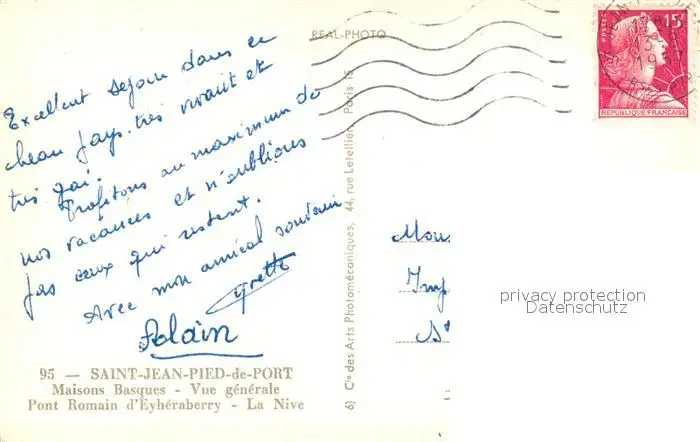 REAL-PHOTO
POSTES
15F
REPUBLIQUE FRANÇAISE
Excellent séjour dans ce
beau pays. très vivant et
très gai.
Profitons au maximum de
nos vacances et n'oublions
pas ceux qui restent.
Avec mon amical souvenir
Yvette
Alain
95 — SAINT-JEAN-PIED-de-PORT
Maisons Basques - Vue générale
Pont Romain d'Eyhéraberry - La Nive
6) Cie des Arts Photomécaniques, 44, rue Letellier, Paris 15
Mon
Imp
St
privacy protection
Datenschutz